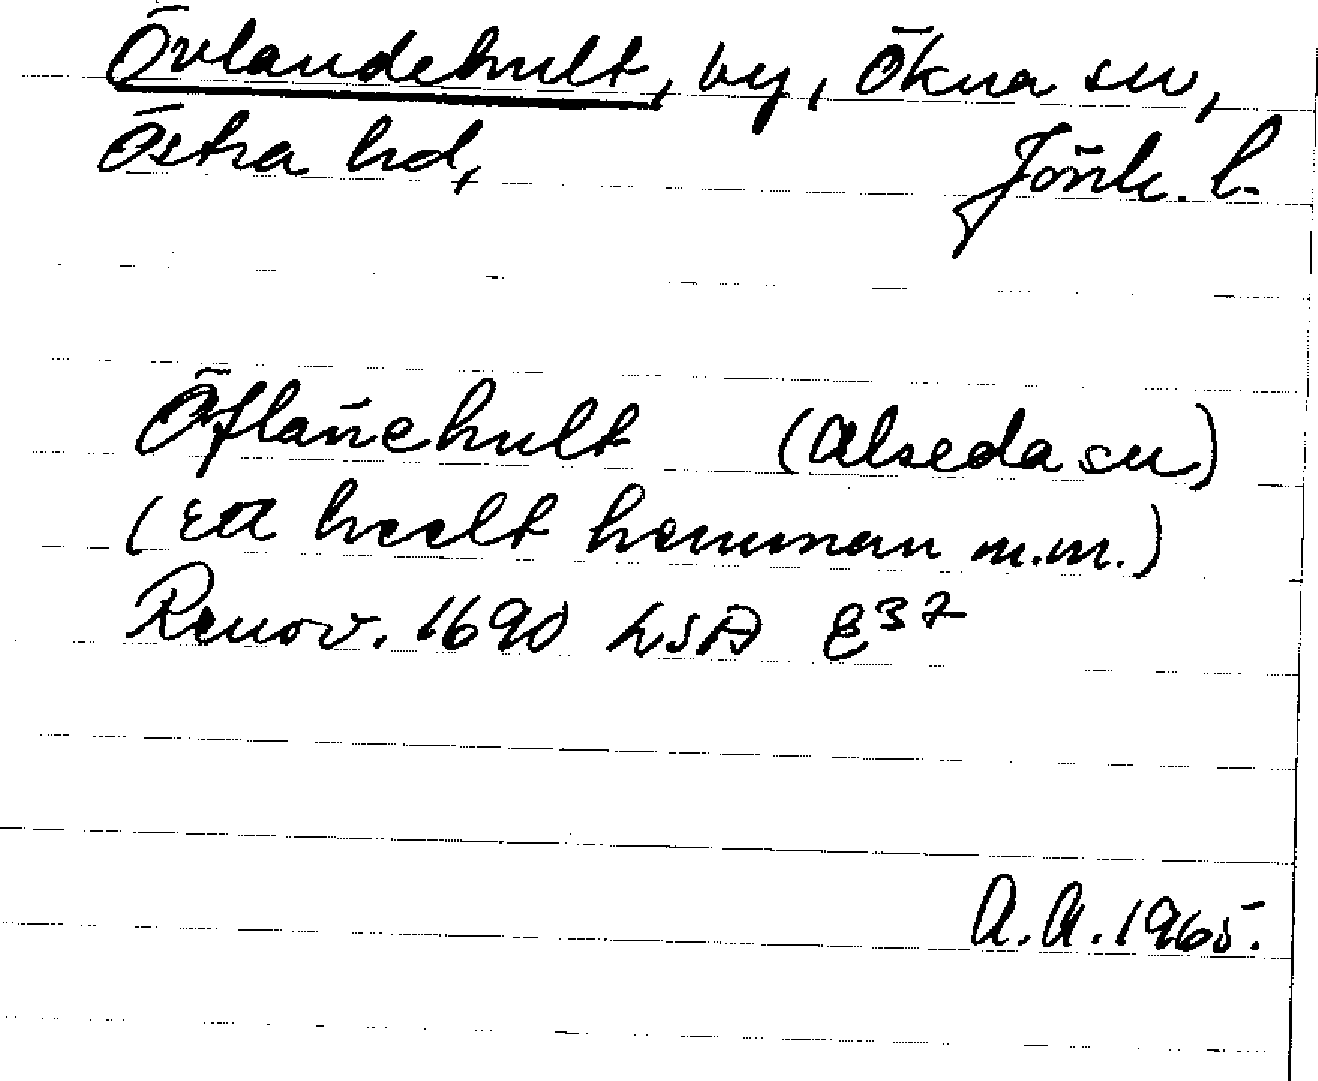 Övlandehult, by, Ökna sn,
Östra hd, Jönk. l.
Öflan̄ehult (Alseda sn)
(Ett heelt hemman m.m.)
Renov. 1690 LSA E³⁷
A.A. 1965.